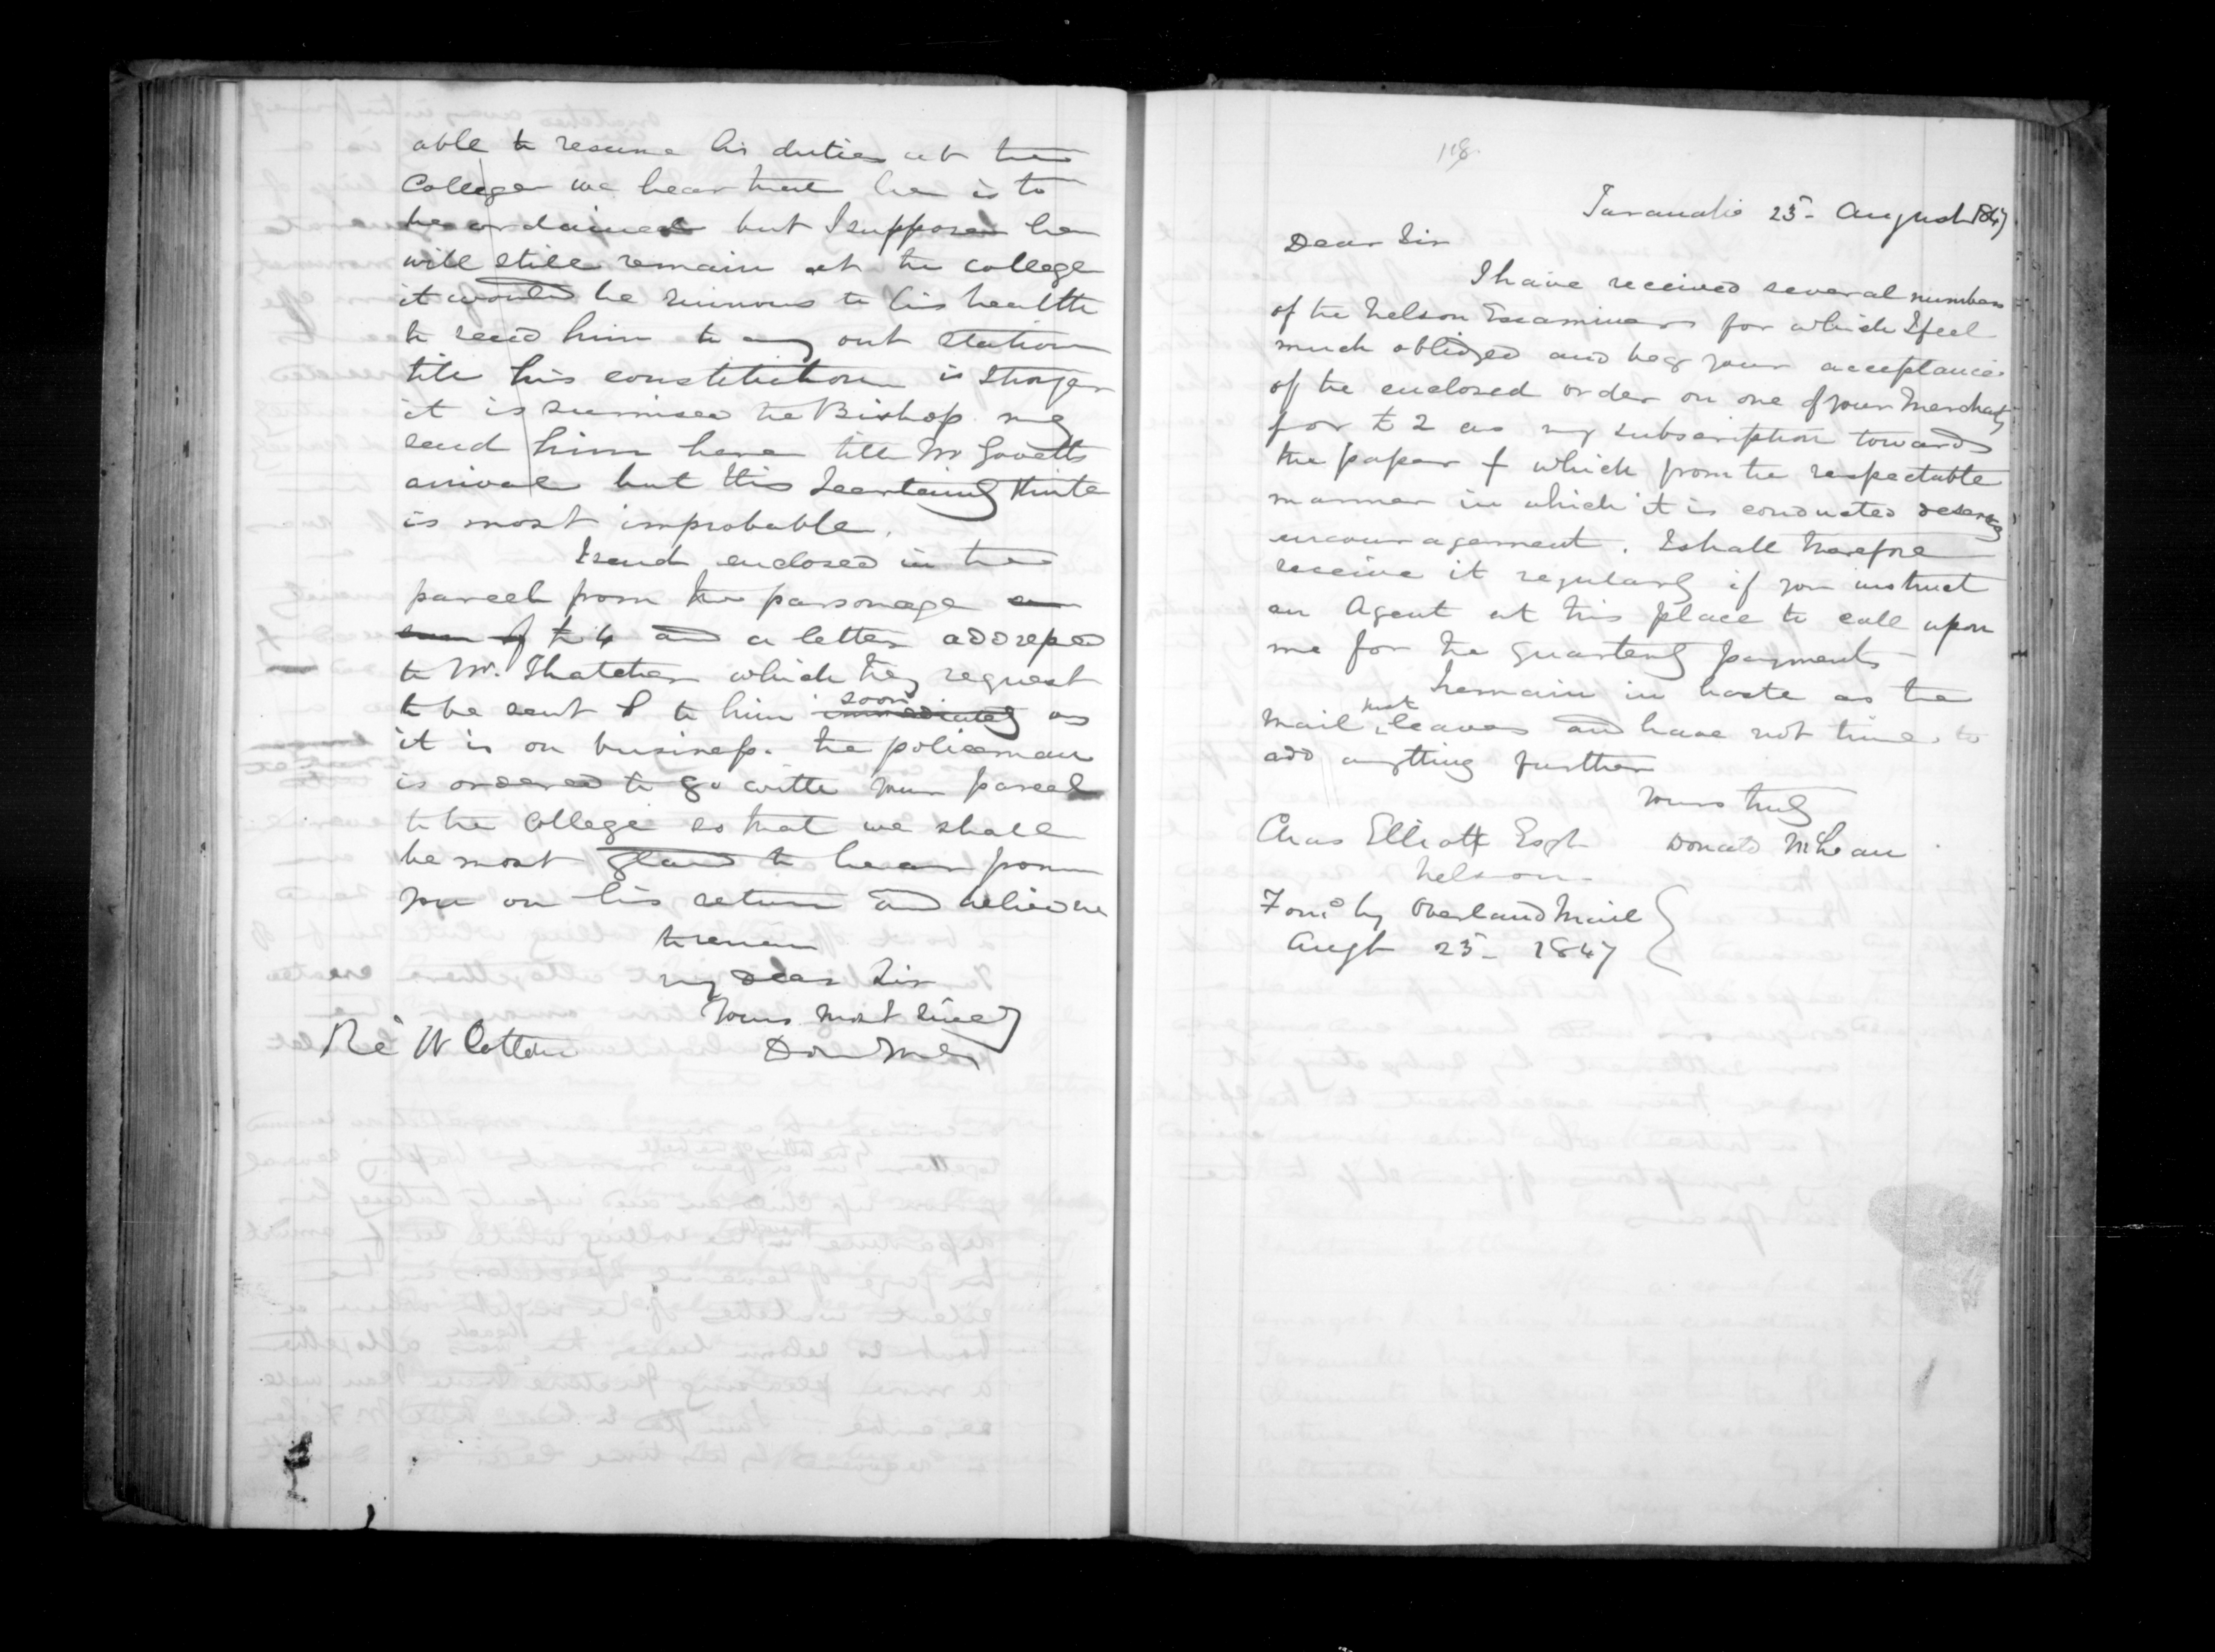 able to resume his duties at the
College we hear that he is to
be ordained but I suppose he
will still remain at the college
it would be ruinous to his health
to send him to any out station
till his constitution is stronger
it is surmised the Bishop may
send him here till Mr Govetts
arrival but this I certainly think
is most improbable.
I send enclosed in the
parcel from the parsonage
sum of £4 and a letter addressed
to Mr. Thatcher which they request
to be sent to him soon immediately as
it is on business. the policeman
is ordered to go with your parcel
to the College so that we shall
be most glad to hear from
you on his return and believe me
to remain
my dear Sir
Yours most sincerely
Revd W Cotton Don McLean
118
Taranaki 25- August 1847
Dear Sir
I have received several numbers
of the Nelson Examiner for which I feel
much obliged and beg your acceptance
of the enclosed order on one of your Merchants
for £2 as my subscription towards
the paper & which from the respectable
manner in which it is conducted deserves
encouragement. I shall therefore
receive it regularly if you instruct
an Agent at this place to call upon
me for the quarterly payments
I remain in haste as the
mail just leaves and have not time to
add anything further
Yours truly
Chas Elliott Esqr Donald McLean
Nelson
Ford by Overland Mail
Augt 25- 1847